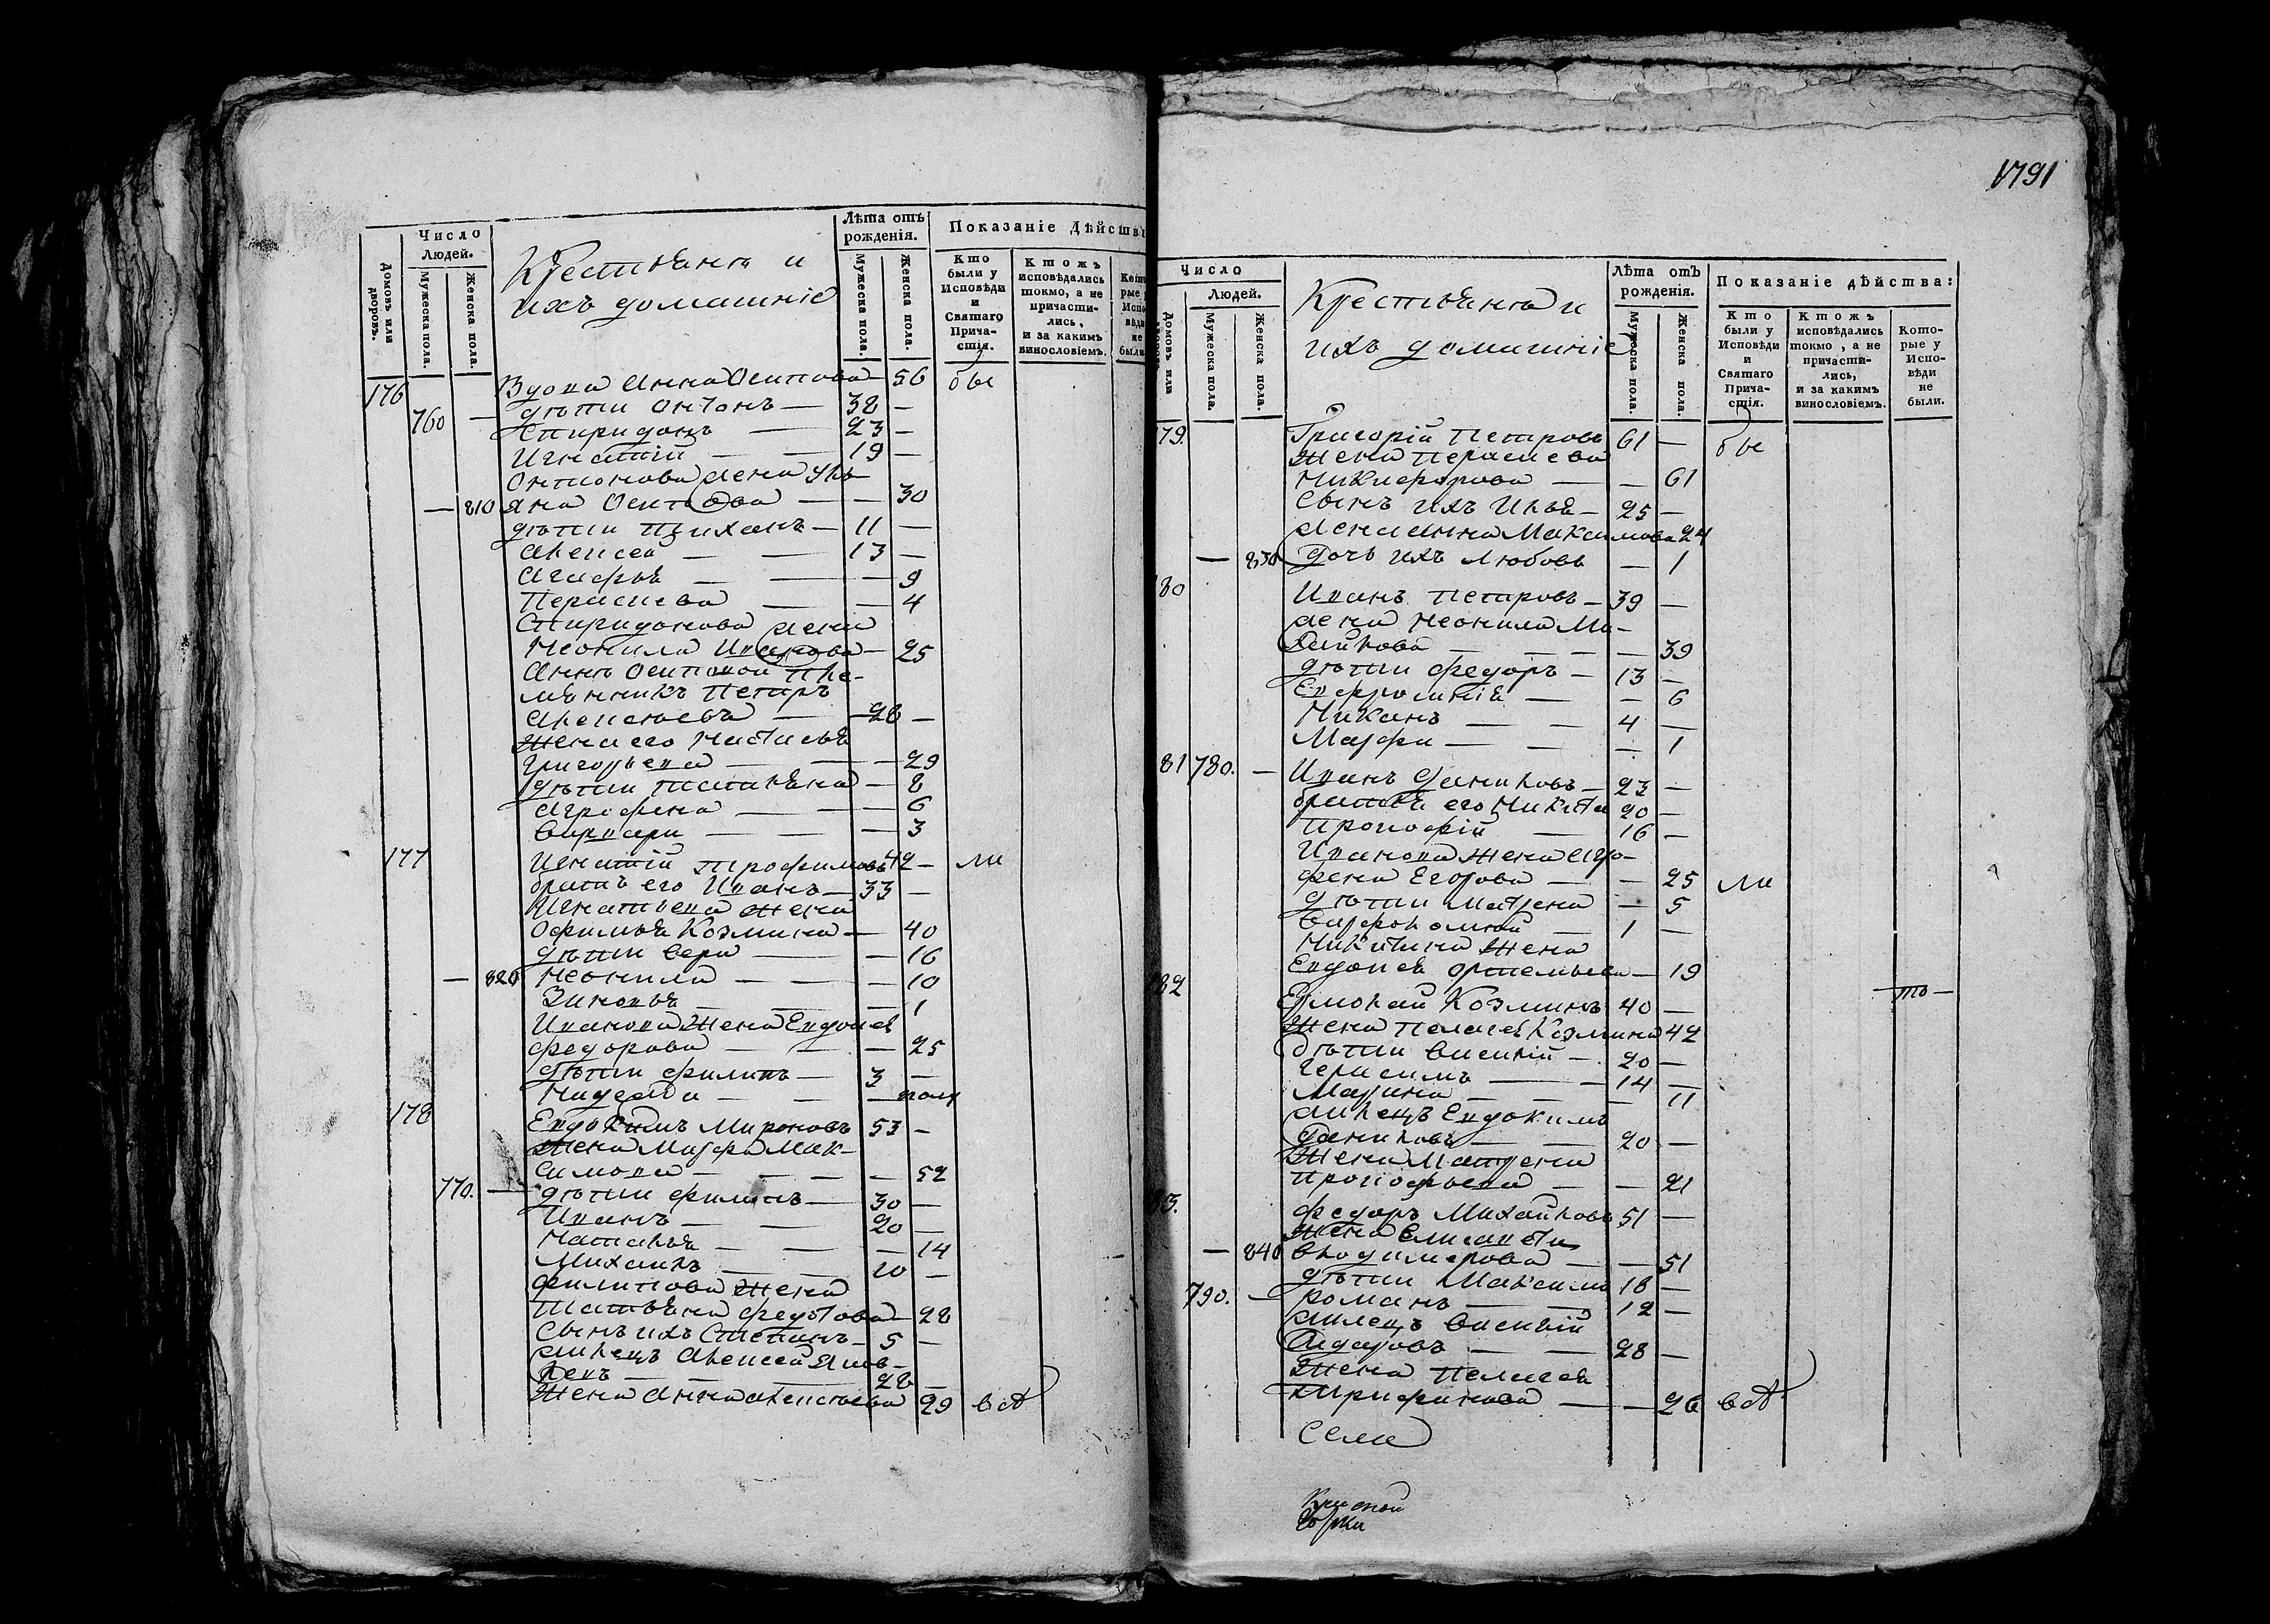 Число
Людей.
Домовъ или дворовъ.
Мужеска пола.
Женска пола.
Крестьяня и
ихъ домашніе
Лѣта отъ
рожденія.
Мужеска пола.
Женска пола.
Показаніе Дѣйств
Кто
были у
Исповѣди
и
Святаго
Прича-
стія.
Ктожъ
исповѣдались
токмо, а не
причасти-
лись,
и за какимъ
винословіемъ.
176 Вдова Анна Осипова — 56 бы
760 — дѣти Онтонъ — 38 —
Спиридонъ — 23 —
Игнатій — — 19 —
Онтонова жена Улья-
— 810 яна Осипова — — 30
дѣти Тиханъ — 11 —
Алексей — — 13 —
Агафья — — — 9
Парасковя — — 4
Спиридонова жена
Неонила Иванова — 25
Анны Осиповой пле-
мянникъ Петръ
Алексѣевъ — — 28 —
Жена его Наталья
Григорьева — — 29
дѣти Татьяна — 8
Агрофена — — 6
Варвара — — — 3
177 Игнатій Трофимовъ 42 — ли
братъ его Иванъ — 33 —
Игнатьева жена
Офимья Козмина — 40
дѣти Вера — — 16
— 820 Неонила — — — 10
Зиновья — — — 1
Иванова жена Евдокея
Федорова — — — 25
дѣти Филипъ — 3 —
Надежда — — — полу
178 Евдокимъ Мироновъ 53 —
Жена Марфа Мак-
симова — — — — 52
770. — дѣти Филипъ — 30 —
Иванъ — — 20 —
Наталья — — — 14
Михаилъ — — 10 —
Филипова жена
Татьяна Федотова — 28
Сынъ ихъ Степанъ — 5 —
жилецъ Алексей Яков-
левъ — — 28 —
Жена Анна Алексѣева 29 вси
1791
Число
Людей.
Мужеска пола.
Женска пола.
Крестьяня и
ихъ домашніе
Лѣта отъ
рожденія.
Мужеска пола.
Женска пола.
Показаніе дѣйства:
Кто
были у
Исповѣди
и
Святаго
Прича-
стія.
Ктожъ
исповѣдались
токмо, а не
причасти-
лись,
и за какимъ
винословіемъ.
Кото-
рые у
Испо-
вѣди
не
были.
79. Григорій Петровъ 61 — бы
Жена Парасковя
Никифорова — — 61
Сынъ ихъ Илья — 25 —
жена Анна Максимова 24
— 830 Дочь ихъ Любовь — 1
180 Иванъ Петровъ — 39 —
жена Неонила Ми-
хайлова — — — 39
дѣти Федоръ — 13 —
Ефросинія — — 6
Никанъ — — 4 —
Марфа — — — 1
81 780. — Иванъ Даниловъ — 23 —
братья его Никита 20 —
Прокофій — 16 —
Иванова жена Агро-
фена Егорова — — 25 ли
дѣти Матрена — 5
Варфоломей — 1 —
Никитина жена
Евдокея Ортемьева — 19
182 Ермолай Козминъ 40 — — то —
Жена Пелагея Козмина 42
дѣти Василій — 20 —
Герасимъ — — 14 —
Марина — — — 11
жилецъ Евдокимъ
Даниловъ — — 20 —
Жена Матрена
Прокофьева — — 21
83. Федоръ Михайловъ 51 —
Жена Елисавета
— 840 Владимерова — — 51
дѣти Максимъ 18 —
790. — Романъ — — 12 —
жилецъ Василій
28 —
Жена Пелагея
— — 26 вси
Села
Красной
Горки